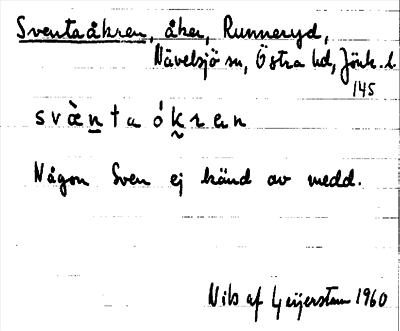 Sventaåkren, åker, Runneryd,
Nävelsjö sn, Östra hd, Jönk. l
145
svὰn̲ta ókran
Någon Sven ej känd av medd.
Nils af Geijerstam 1960